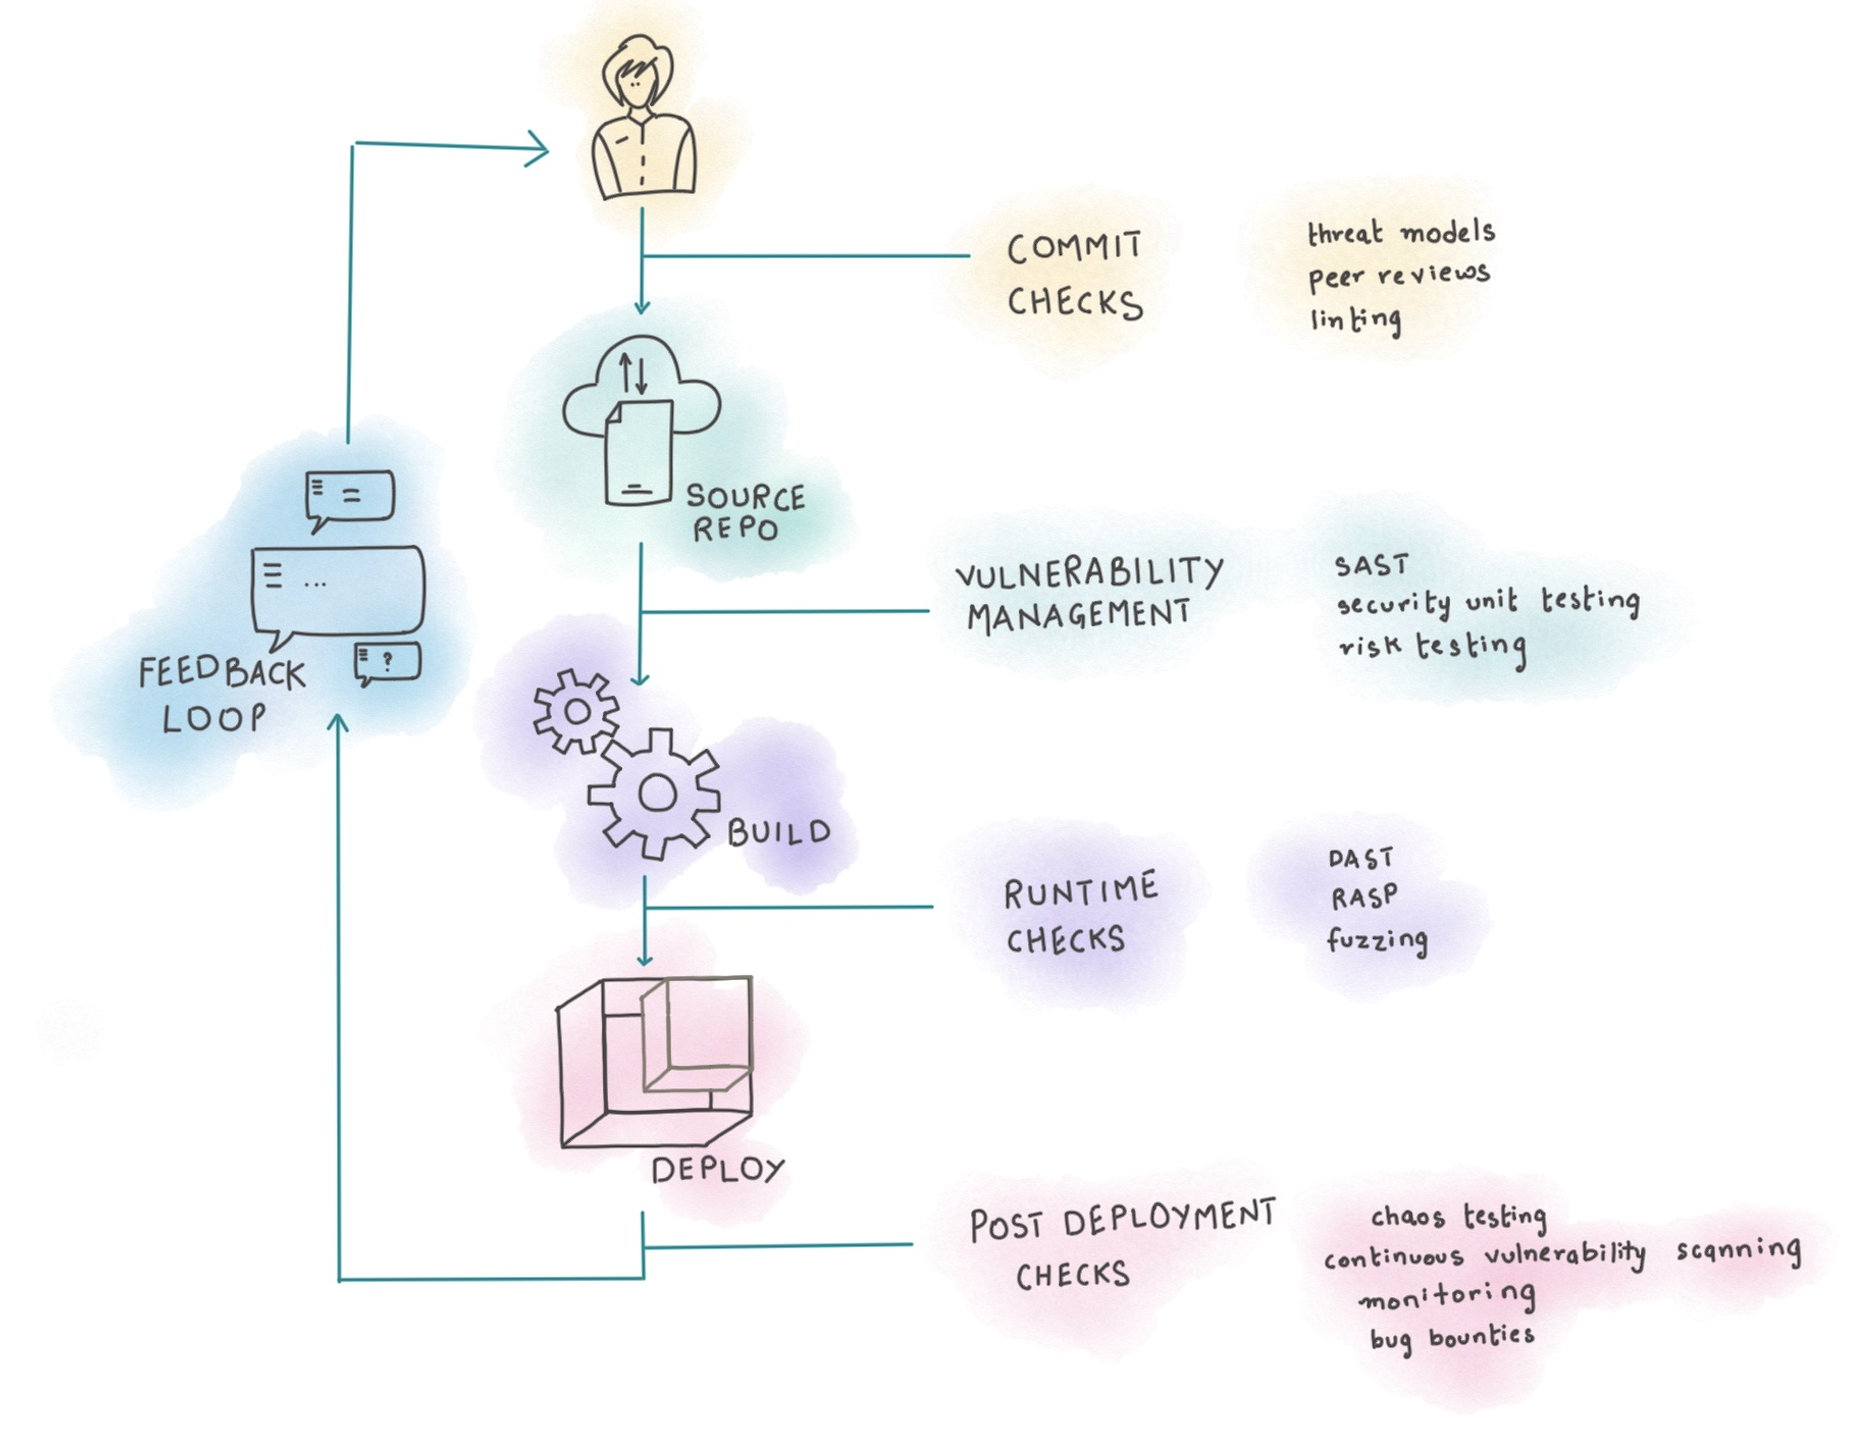 COMMIT
CHECKS
threat models
peer reviews
linting
SOURCE
REPO
VULNERABILITY
MANAGEMENT
SAST
security unit testing
risk testing
= 
...
?
FEEDBACK
LOOP
BUILD
RUNTIME
CHECKS
DAST
RASP
fuzzing
DEPLOY
POST DEPLOYMENT
CHECKS
chaos testing
continuous vulnerability scanning
monitoring
bug bounties